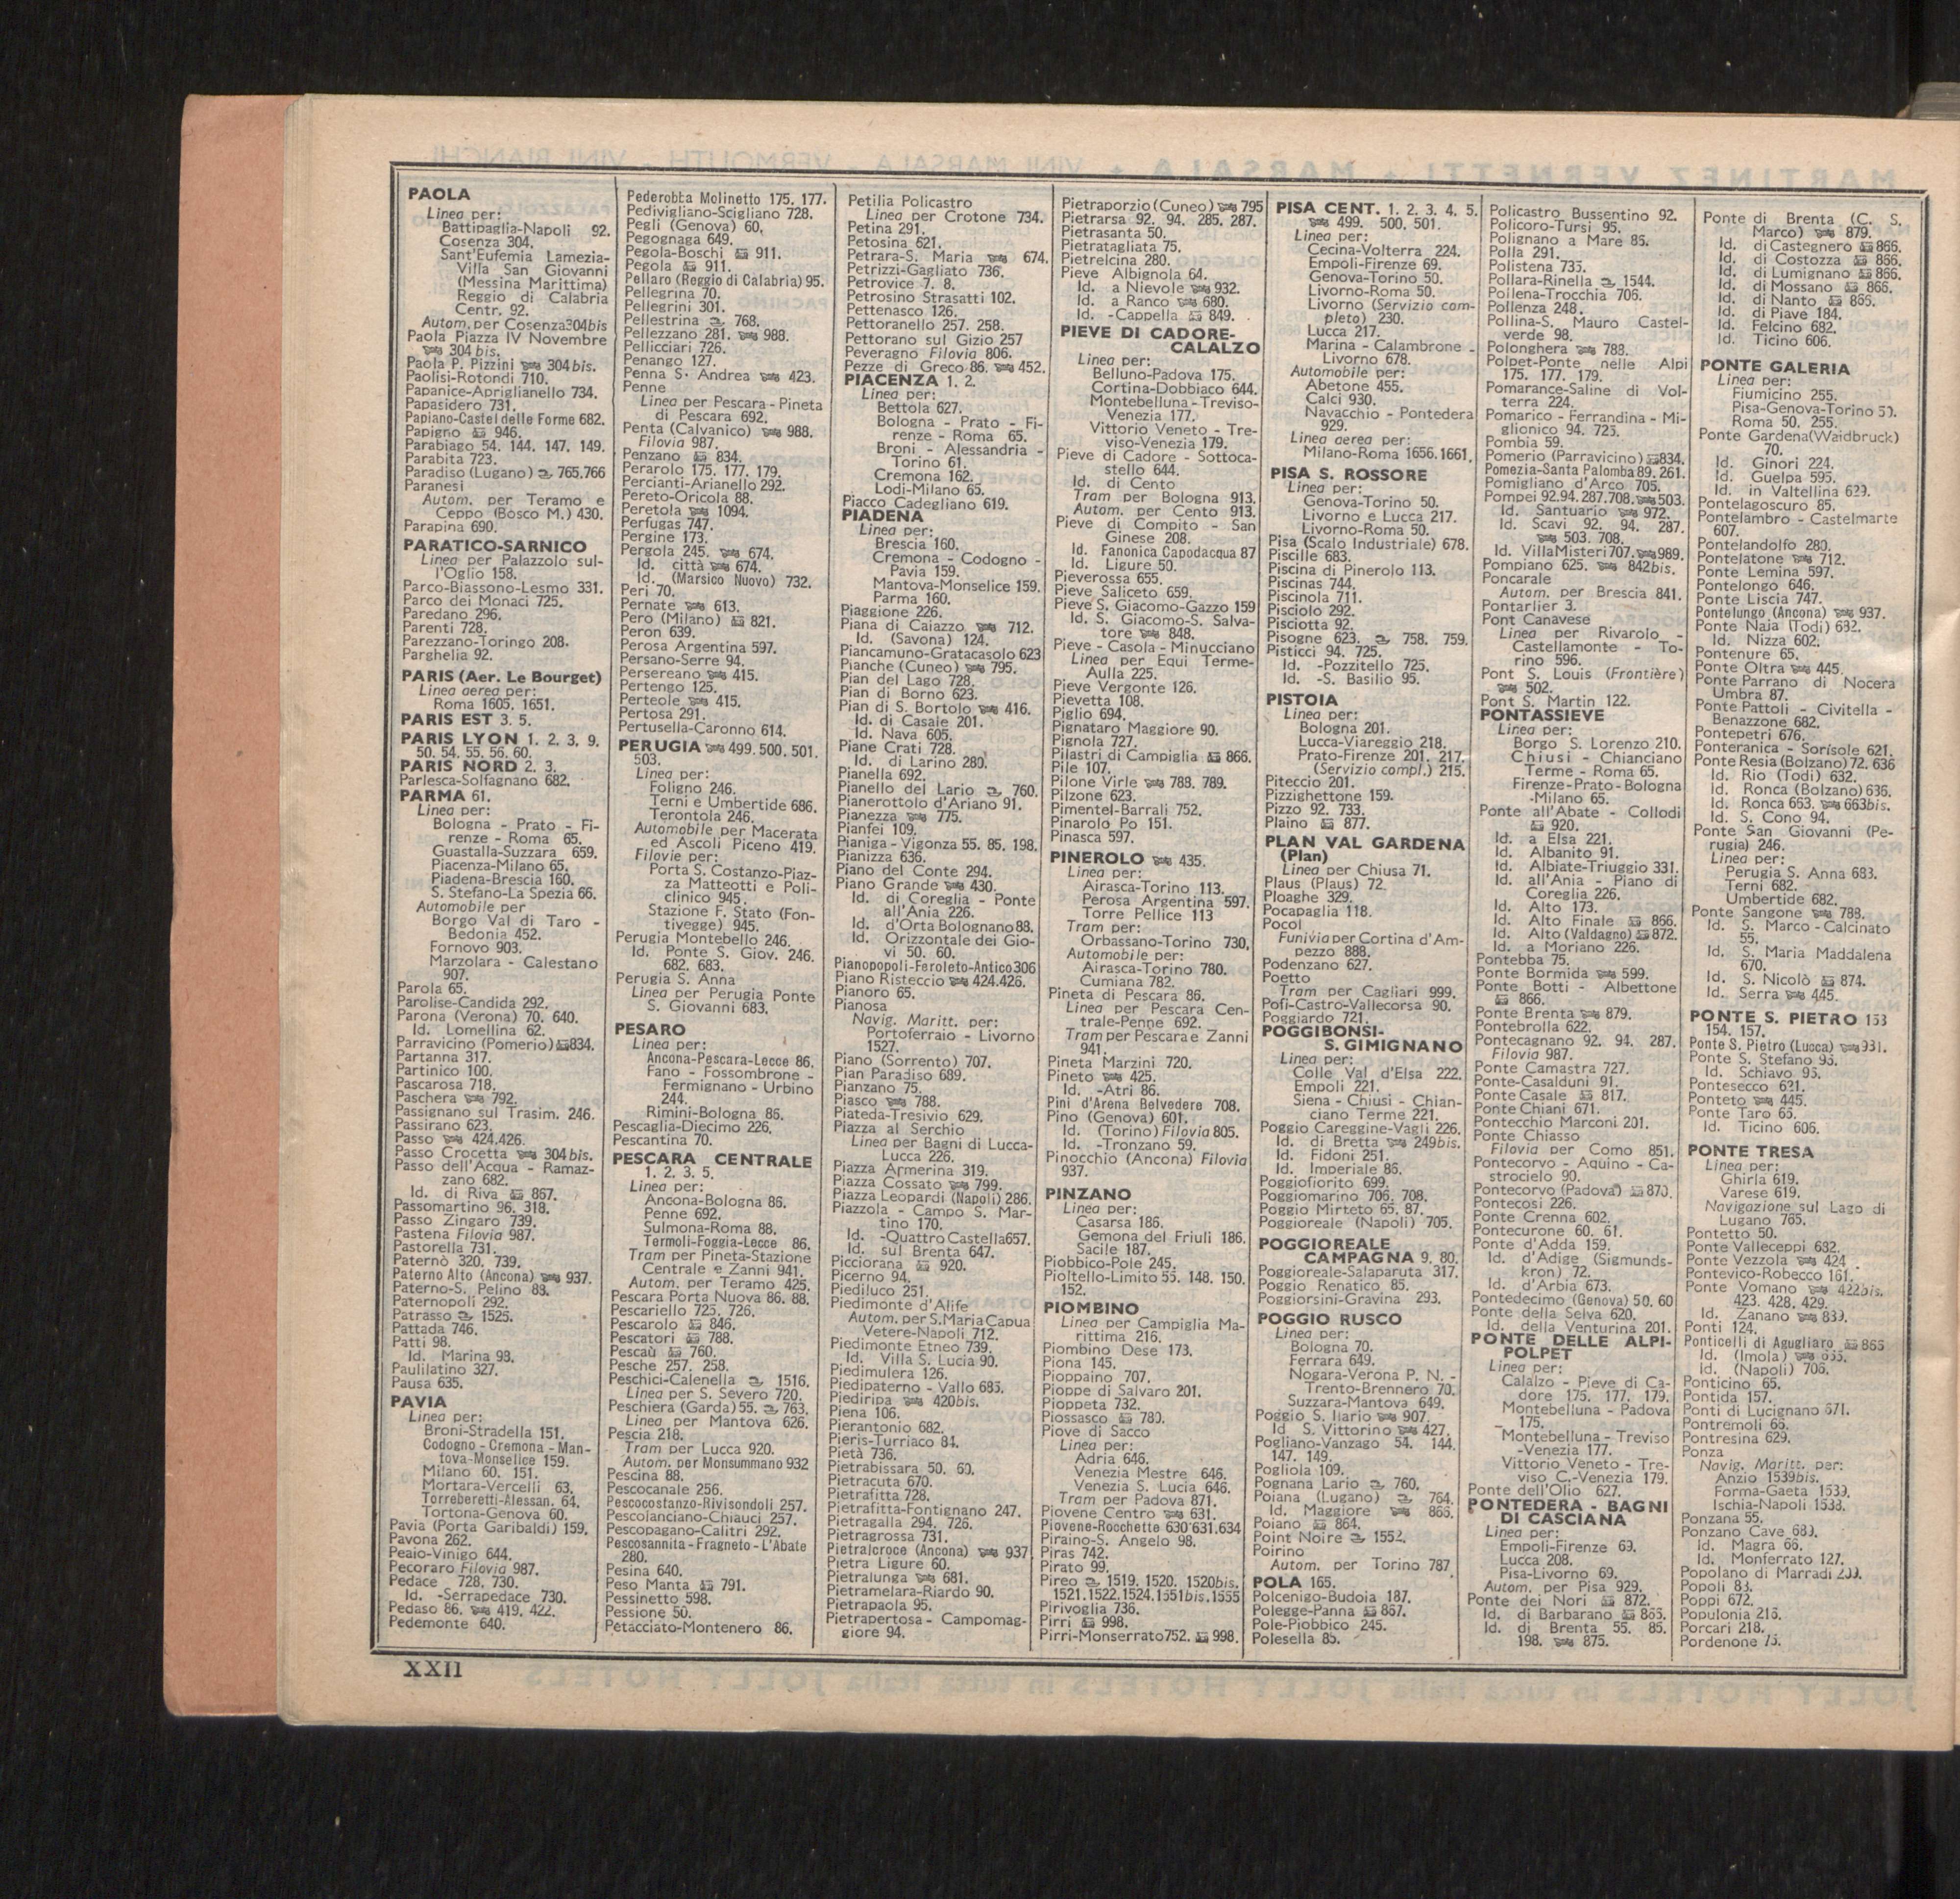 PAOLA
Linea per:
Battipaglia-Napoli 92.
Cosenza 304.
Sant'Eufemia Lamezia-
Villa San Giovanni
(Messina Marittima)
Reggio di Calabria
Centr. 92.
Autom. per Cosenza304bis
Paola Piazza IV Novembre
304 bis.
Paola P. Pizzini 304bis.
Paolisi-Rotondi 710.
Papanice-Apriglianello 734.
Papasidero 731.
Papiano-Castel delle Forme 682.
Papigno 946.
Parabiago 54. 144. 147. 149.
Parabita 723.
Paradiso (Lugano) 765.766
Paranesi
Autom. per Teramo e
Ceppo (Bosco M.) 430.
Parapina 690.
PARATICO-SARNICO
Linea per Palazzolo sul-
l'Oglio 158.
Parco-Biassono-Lesmo 331.
Parco dei Monaci 725.
Paredano 296.
Parenti 728.
Parezzano-Toringo 208.
Parghelia 92.
PARIS (Aer. Le Bourget)
Linea aerea per:
Roma 1605. 1651.
PARIS EST 3. 5.
PARIS LYON 1. 2. 3, 9.
50. 54. 55. 56. 60.
PARIS NORD 2. 3.
Parlesca-Solfagnano 682.
PARMA 61.
Linea per:
Bologna - Prato - Fi-
renze - Roma 65.
Guastalla-Suzzara 659.
Piacenza-Milano 65.
Piadena-Brescia 160.
S. Stefano-La Spezia 66.
Automobile per
Borgo Val di Taro -
Bedonia 452.
Fornovo 903.
Marzolara - Calestano
907.
Parola 65.
Parolise-Candida 292.
Parona (Verona) 70. 640.
Id. Lomellina 62.
Parravicino (Pomerio) 834.
Partanna 317.
Partinico 100.
Pascarosa 718.
Paschera 792.
Passignano sul Trasim. 246.
Passirano 623.
Passo 424.426.
Passo Crocetta 304bis.
Passo dell'Acqua - Ramaz-
zano 682.
Id. di Riva 867.
Passomartino 96. 318.
Passo Zingaro 739.
Pastena Filovia 987.
Pastorella 731.
Paternò 320. 739.
Paterno Alto (Ancona) 937.
Paterno-S. Pelino 88.
Paternopoli 292.
Patrasso 1525.
Pattada 746.
Patti 98.
Id. Marina 98.
Paulilatino 327.
Pausa 635.
PAVIA
Linea per:
Broni-Stradella 151.
Codogno - Cremona - Man-
tova-Monselice 159.
Milano 60. 151.
Mortara-Vercelli 63.
Torreberetti-Alessan. 64.
Tortona-Genova 60.
Pavia (Porta Garibaldi) 159.
Pavona 262.
Peaio-Vinigo 644.
Pecoraro Filovia 987.
Pedace 728. 730.
Id. -Serrapedace 730.
Pedaso 86. 419. 422.
Pedemonte 640.
Pederobba Molinetto 175. 177.
Pedivigliano-Scigliano 728.
Pegli (Genova) 60.
Pegognaga 649.
Pegola-Boschi 911.
Pegola 911.
Pellaro (Reggio di Calabria) 95.
Pellegrina 70.
Pellegrini 301.
Pellestrina 768.
Pellezzano 281. 988.
Pellicciari 726.
Penango 127.
Penna S. Andrea 423.
Penne
Linea per Pescara - Pineta
di Pescara 692.
Penta (Calvanico) 988.
Filovia 987.
Penzano 834.
Perarolo 175. 177. 179.
Percianti-Arianello 292.
Pereto-Oricola 88.
Peretola 1094.
Perfugas 747.
Pergine 173.
Pergola 245. 674.
Id. città 674.
Id. (Marsico Nuovo) 732.
Peri 70.
Pernate 613.
Pero (Milano) 821.
Peron 639.
Perosa Argentina 597.
Persano-Serre 94.
Persereano 415.
Pertengo 125.
Perteole 415.
Pertosa 291.
Pertusella-Caronno 614.
PERUGIA 499. 500. 501.
503.
Linea per:
Foligno 246.
Terni e Umbertide 686.
Terontola 246.
Automobile per Macerata
ed Ascoli Piceno 419.
Filovie per:
Porta S. Costanzo-Piaz-
za Matteotti e Poli-
clinico 945.
Stazione F. Stato (Fon-
tivegge) 945.
Perugia Montebello 246.
Id. Ponte S. Giov. 246.
682. 683.
Perugia S. Anna
Linea per Perugia Ponte
S. Giovanni 683.
PESARO
Linea per:
Ancona-Pescara-Lecce 86.
Fano - Fossombrone -
Fermignano - Urbino
244.
Rimini-Bologna 86.
Pescaglia-Diecimo 226.
Pescantina 70.
PESCARA CENTRALE
1. 2. 3. 5.
Linea per:
Ancona-Bologna 86.
Penne 692.
Sulmona-Roma 88.
Termoli-Foggia-Lecce 86.
Tram per Pineta-Stazione
Centrale e Zanni 941.
Autom. per Teramo 425.
Pescara Porta Nuova 86. 88.
Pescariello 725. 726.
Pescarolo 846.
Pescatori 788.
Pescaù 760.
Pesche 257. 258.
Peschici-Calenella 1516.
Linea per S. Severo 720.
Peschiera (Garda) 55. 763.
Linea per Mantova 626.
Pescia 218.
Tram per Lucca 920.
Autom. per Monsummano 932
Pescina 88.
Pescocanale 256.
Pescocostanzo-Rivisondoli 257.
Pescolanciano-Chiauci 257.
Pescopagano-Calitri 292.
Pescosannita - Fragneto - L'Abate
280.
Pesina 640.
Peso Manta 791.
Pessinetto 598.
Pessione 50.
Petacciato-Montenero 86.
Petilia Policastro
Linea per Crotone 734.
Petina 291.
Petosina 621.
Petrara-S. Maria 674.
Petrizzi-Gagliato 736.
Petrovice 7. 8.
Petrosino Strasatti 102.
Pettenasco 126.
Pettoranello 257. 258.
Pettorano sul Gizio 257
Peveragno Filovia 806.
Pezze di Greco 86. 452.
PIACENZA 1. 2.
Linea per:
Bettola 627.
Bologna - Prato - Fi-
renze - Roma 65.
Broni - Alessandria -
Torino 61.
Cremona 162.
Lodi-Milano 65.
Piacco Cadegliano 619.
PIADENA
Linea per:
Brescia 160.
Cremona - Codogno -
Pavia 159.
Mantova-Monselice 159.
Parma 160.
Piaggione 226.
Piana di Caiazzo 712.
Id. (Savona) 124.
Piancamuno-Gratacasolo 623
Pianche (Cuneo) 795.
Pian del Lago 728.
Pian di Borno 623.
Pian di S. Bortolo 416.
Id. di Casale 201.
Id. Nava 605.
Piane Crati 728.
Id. di Larino 280.
Pianella 692.
Pianello del Lario 760.
Pianerottolo d'Ariano 91.
Pianezza 775.
Pianfei 109.
Pianiga - Vigonza 55. 85. 198.
Pianizza 636.
Piano del Conte 294.
Piano Grande 430.
Id. di Coreglia - Ponte
all'Ania 226.
Id. d'Orta Bolognano 88.
Id. Orizzontale dei Gio-
vi 50. 60.
Pianopopoli-Feroleto-Antico306
Piano Risteccio 424.426.
Pianoro 65.
Pianosa
Navig. Maritt. per:
Portoferraio - Livorno
1527.
Piano (Sorrento) 707.
Pian Paradiso 689.
Pianzano 75.
Piasco 788.
Piateda-Tresivio 629.
Piazza al Serchio
Linea per Bagni di Lucca-
Lucca 226.
Piazza Armerina 319.
Piazza Cossato 799.
Piazza Leopardi (Napoli) 286.
Piazzola - Campo S. Mar-
tino 170.
Id. -Quattro Castella657.
Id. sul Brenta 647.
Picciorana 920.
Picerno 94.
Piediluco 251.
Piedimonte d'Alife
Autom. per S.Maria Capua
Vetere-Napoli 712.
Piedimonte Etneo 739.
Id. Villa S. Lucia 90.
Piedimulera 126.
Piedipaterno - Vallo 685.
Piediripa 420bis.
Piena 106.
Pierantonio 682.
Pieris-Turriaco 84.
Pietà 736.
Pietrabissara 50. 60.
Pietracuta 670.
Pietrafitta 728.
Pietrafitta-Fontignano 247.
Pietragalla 294. 726.
Pietragrossa 731.
Pietralcroce (Ancona) 937
Pietra Ligure 60.
Pietralunga 681.
Pietramelara-Riardo 90.
Pietrapaola 95.
Pietrapertosa - Campomag-
giore 94.
Pietraporzio (Cuneo) 795
Pietrarsa 92. 94. 285. 287.
Pietrasanta 50.
Pietratagliata 75.
Pietrelcina 280.
Pieve Albignola 64.
Id. a Nievole 932.
Id. a Ranco 680.
Id. -Cappella 849.
PIEVE DI CADORE-
CALALZO
Linea per:
Belluno-Padova 175.
Cortina-Dobbiaco 644.
Montebelluna - Treviso-
Venezia 177.
Vittorio Veneto - Tre-
viso-Venezia 179.
Pieve di Cadore - Sottoca-
stello 644.
Id. di Cento
Tram per Bologna 913.
Autom. per Cento 913.
Pieve di Compito - San
Ginese 208.
Id. Fanonica Capodacqua 87
Id. Ligure 50.
Pieverossa 655.
Pieve Saliceto 659.
Pieve S. Giacomo-Gazzo 159
Id. S. Giacomo-S. Salva-
tore 848.
Pieve - Casola - Minucciano
Linea per Equi Terme-
Aulla 225.
Pieve Vergonte 126.
Pievetta 108.
Piglio 694.
Pignataro Maggiore 90.
Pignola 727.
Pilastri di Campiglia 866.
Pile 107.
Pilone Virle 788. 789.
Pilzone 623.
Pimentel-Barrali 752.
Pinarolo Po 151.
Pinasca 597.
PINEROLO 435.
Linea per:
Airasca-Torino 113.
Perosa Argentina 597.
Torre Pellice 113
Tram per:
Orbassano-Torino 730.
Automobile per:
Airasca-Torino 780.
Cumiana 782.
Pineta di Pescara 86.
Linea per Pescara Cen-
trale-Penne 692.
Tram per Pescara e Zanni
941.
Pineta Marzini 720.
Pineto 425.
Id. -Atri 86.
Pini d'Arena Belvedere 708.
Pino (Genova) 601.
Id. (Torino) Filovia 805.
Id. -Tronzano 59.
Pinocchio (Ancona) Filovia
937.
PINZANO
Linea per:
Casarsa 186.
Gemona del Friuli 186.
Sacile 187.
Piobbico-Pole 245.
Pioltello-Limito 55. 148. 150.
152.
PIOMBINO
Linea per Campiglia Ma-
rittima 216.
Piombino Dese 173.
Piona 145.
Pioppaino 707.
Pioppe di Salvaro 201.
Pioppeta 732.
Piossasco 780.
Piove di Sacco
Linea per:
Adria 646.
Venezia Mestre 646.
Venezia S. Lucia 646.
Tram per Padova 871.
Piovene Centro 631.
Piovene-Rocchette 630 631.634
Piraino-S. Angelo 98.
Piras 742.
Pirato 99.
Pireo 1519. 1520. 1520bis.
1521.1522.1524.1551bis.1555
Pirivoglia 736.
Pirri 998.
Pirri-Monserrato752. 998.
PISA CENT. 1. 2. 3. 4. 5.
499. 500. 501.
Linea per:
Cecina-Volterra 224.
Empoli-Firenze 69.
Genova-Torino 50.
Livorno-Roma 50.
Livorno (Servizio com-
pleto) 230.
Lucca 217.
Marina - Calambrone -
Livorno 678.
Automobile per:
Abetone 455.
Calci 930.
Navacchio - Pontedera
929.
Linea aerea per:
Milano-Roma 1656.1661.
PISA S. ROSSORE
Linea per:
Genova-Torino 50.
Livorno e Lucca 217.
Livorno-Roma 50.
Pisa (Scalo Industriale) 678.
Piscille 683.
Piscina di Pinerolo 113.
Piscinas 744.
Piscinola 711.
Pisciolo 292.
Pisciotta 92.
Pisogne 623. 758. 759.
Pisticci 94. 725.
Id. -Pozzitello 725.
Id. -S. Basilio 95.
PISTOIA
Linea per:
Bologna 201.
Lucca-Viareggio 218.
Prato-Firenze 201. 217.
(Servizio compl.) 215.
Piteccio 201.
Pizzighettone 159.
Pizzo 92. 733.
Plaino 877.
PLAN VAL GARDENA
(Plan)
Linea per Chiusa 71.
Plaus (Plaus) 72.
Ploaghe 329.
Pocapaglia 118.
Pocol
Funivia per Cortina d'Am-
pezzo 888.
Podenzano 627.
Poetto
Tram per Cagliari 999.
Pofi-Castro-Vallecorsa 90.
Poggiardo 721.
POGGIBONSI-
S. GIMIGNANO
Linea per:
Colle Val d'Elsa 222.
Empoli 221.
Siena - Chiusi - Chian-
ciano Terme 221.
Poggio Careggine-Vagli 226.
Id. di Bretta 249bis.
Id. Fidoni 251.
Id. Imperiale 86.
Poggiofiorito 699.
Poggiomarino 706. 708.
Poggio Mirteto 65. 87.
Poggioreale (Napoli) 705.
POGGIOREALE
CAMPAGNA 9. 80.
Poggioreale-Salaparuta 317.
Poggio Renatico 85.
Poggiorsini-Gravina 293.
POGGIO RUSCO
Linea per:
Bologna 70.
Ferrara 649.
Nogara-Verona P. N. -
Trento-Brennero 70.
Suzzara-Mantova 649.
Poggio S. Ilario 907.
Id S. Vittorino 427.
Pogliano-Vanzago 54. 144.
147. 149.
Pogliola 109.
Pognana Lario 760.
Poiana (Lugano) 764.
Id. Maggiore 866.
Poiano 864.
Point Noire 1552.
Poirino
Autom. per Torino 787
POLA 165.
Polcenigo-Budoia 187.
Polegge-Panna 867.
Pole-Piobbico 245.
Polesella 85.
Policastro Bussentino 92.
Policoro-Tursi 95.
Polignano a Mare 86.
Polla 291.
Polistena 735.
Pollara-Rinella 1544.
Pollena-Trocchia 706.
Pollenza 248.
Pollina-S. Mauro Castel-
verde 98.
Polonghera 788.
Polpet-Ponte nelle Alpi
175. 177. 179.
Pomarance-Saline di Vol-
terra 224.
Pomarico - Ferrandina - Mi-
glionico 94. 725.
Pombia 59.
Pomerio (Parravicino) 834.
Pomezia-Santa Palomba 89. 261.
Pomigliano d'Arco 705.
Pompei 92.94.287.708. 503.
Id. Santuario 972.
Id. Scavi 92. 94. 287.
503. 708.
Id. Villa Misteri 707. 989.
Pompiano 625. 842bis.
Poncarale
Autom. per Brescia 841.
Pontarlier 3.
Pont Canavese
Linea per Rivarolo -
Castellamonte - To-
rino 596.
Pont S. Louis (Frontière)
502.
Pont S. Martin 122.
PONTASSIEVE
Linea per:
Borgo S. Lorenzo 210.
Chiusi - Chianciano
Terme - Roma 65.
Firenze-Prato-Bologna
-Milano 65.
Ponte all'Abate - Collodi
920.
Id. a Elsa 221.
Id. Albanito 91.
Id. Albiate-Triuggio 331.
Id. all'Ania - Piano di
Coreglia 226.
Id. Alto 173.
Id. Alto Finale 866.
Id. Alto (Valdagno) 872.
Id. a Moriano 226.
Pontebba 75.
Ponte Bormida 599.
Ponte Botti - Albettone
866.
Ponte Brenta 879.
Pontebrolla 622.
Pontecagnano 92. 94. 287.
Filovia 987.
Ponte Camastra 727.
Ponte-Casalduni 91.
Ponte Casale 817.
Ponte Chiani 671.
Pontecchio Marconi 201.
Ponte Chiasso
Filovia per Como 851.
Pontecorvo - Aquino - Ca-
strocielo 90.
Pontecorvo (Padova) 870.
Pontecosi 226.
Ponte Crenna 602.
Pontecurone 60. 61.
Ponte d'Adda 159.
Id. d'Adige (Sigmunds-
kron) 72.
Id. d'Arbia 673.
Pontedecimo (Genova) 50. 60
Ponte della Selva 620.
Id. della Venturina 201.
PONTE DELLE ALPI-
POLPET
Linea per:
Calalzo - Pieve di Ca-
dore 175. 177. 179.
Montebelluna - Padova
175.
Montebelluna - Treviso
-Venezia 177.
Vittorio Veneto - Tre-
viso C.-Venezia 179.
Ponte dell'Olio 627.
PONTEDERA - BAGNI
DI CASCIANA
Linea per:
Empoli-Firenze 69.
Lucca 208.
Pisa-Livorno 69.
Autom. per Pisa 929.
Ponte dei Nori 872.
Id. di Barbarano 866.
Id. di Brenta 55. 85.
198. 875.
Ponte di Brenta (C. S.
Marco) 879.
Id. di Castegnero 866.
Id. di Costozza 866.
Id. di Lumignano 866.
Id. di Mossano 866.
Id. di Nanto 866.
Id. di Piave 184.
Id. Felcino 682.
Id. Ticino 606.
PONTE GALERIA
Linea per:
Fiumicino 255.
Pisa-Genova-Torino 50.
Roma 50. 255.
Ponte Gardena(Waidbruck)
70.
Id. Ginori 224.
Id. Guelpa 595.
Id. in Valtellina 629.
Pontelagoscuro 85.
Pontelambro - Castelmarte
607.
Pontelandolfo 280.
Pontelatone 712.
Ponte Lemina 597.
Pontelongo 646.
Ponte Liscia 747.
Pontelungo (Ancona) 937.
Ponte Naia (Todi) 682.
Id. Nizza 602.
Pontenure 65.
Ponte Oltra 445.
Ponte Parrano di Nocera
Umbra 87.
Ponte Pattoli - Civitella -
Benazzone 682.
Pontepetri 676.
Ponteranica - Sorisole 621.
Ponte Resia (Bolzano) 72. 636
Id. Rio (Todi) 632.
Id. Ronca (Bolzano) 636.
Id. Ronca 663. 663bis.
Id. S. Cono 94.
Ponte San Giovanni (Pe-
rugia) 246.
Linea per:
Perugia S. Anna 683.
Terni 682.
Umbertide 682.
Ponte Sangone 788.
Id. S. Marco - Calcinato
55.
Id. S. Maria Maddalena
670.
Id. S. Nicolò 874.
Id. Serra 445.
PONTE S. PIETRO 153
154. 157.
Ponte S. Pietro (Lucca) 931.
Ponte S. Stefano 95.
Id. Schiavo 95.
Pontesecco 621.
Ponteto 445.
Ponte Taro 65.
Id. Ticino 606.
PONTE TRESA
Linea per:
Ghirla 619.
Varese 619.
Navigazione sul Lago di
Lugano 765.
Pontetto 50.
Ponte Valleceppi 682.
Ponte Vezzola 424
Pontevico-Robecco 161.
Ponte Vomano 422bis.
423. 428. 429.
Id. Zanano 839.
Ponti 124.
Ponticelli di Agugliaro 866
Id. (Imola)
Id. (Napoli) 706.
Ponticino 65.
Pontida 157.
Ponti di Lucignano 671.
Pontremoli 66.
Pontresina 629.
Ponza
Navig. Maritt. per:
Anzio 1539bis.
Forma-Gaeta 1539.
Ischia-Napoli 1538.
Ponzana 55.
Ponzano Cave 689.
Id. Magra 66.
Id. Monferrato 127.
Popolano di Marradi
Popoli 88.
Poppi 672.
Populonia 216.
Porcari 218.
Pordenone 75.
XXII